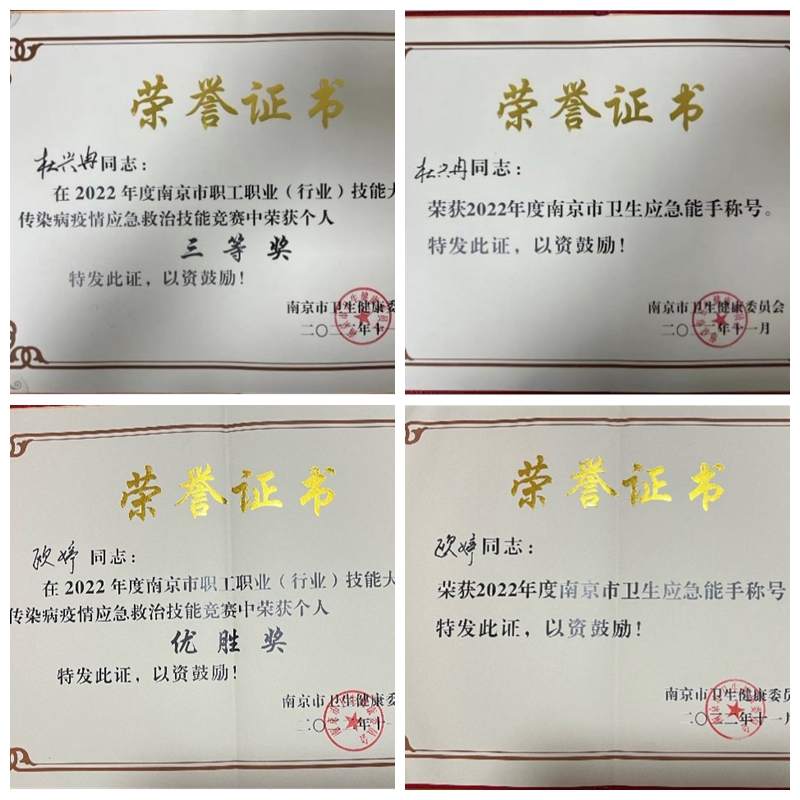 荣誉证书
杜兴冉同志：
在 2022 年度南京市职工职业（行业）技能大
传染病疫情应急救治技能竞赛中荣获个人
三等奖
特发此证，以资鼓励！
南京市卫生健康委
二〇二二年十一
荣誉证书
杜兴冉同志：
荣获2022年度南京市卫生应急能手称号。
特发此证，以资鼓励！
南京市卫生健康委员会
二〇二二年十一月
荣誉证书
欧婷 同志：
在 2022 年度南京市职工职业（行业）技能大
传染病疫情应急救治技能竞赛中荣获个人
优胜奖
特发此证，以资鼓励！
南京市卫生健康委
二〇二二年十一
荣誉证书
欧婷同志：
荣获2022年度南京市卫生应急能手称号
特发此证，以资鼓励！
南京市卫生健康委员
二〇二二年十一月